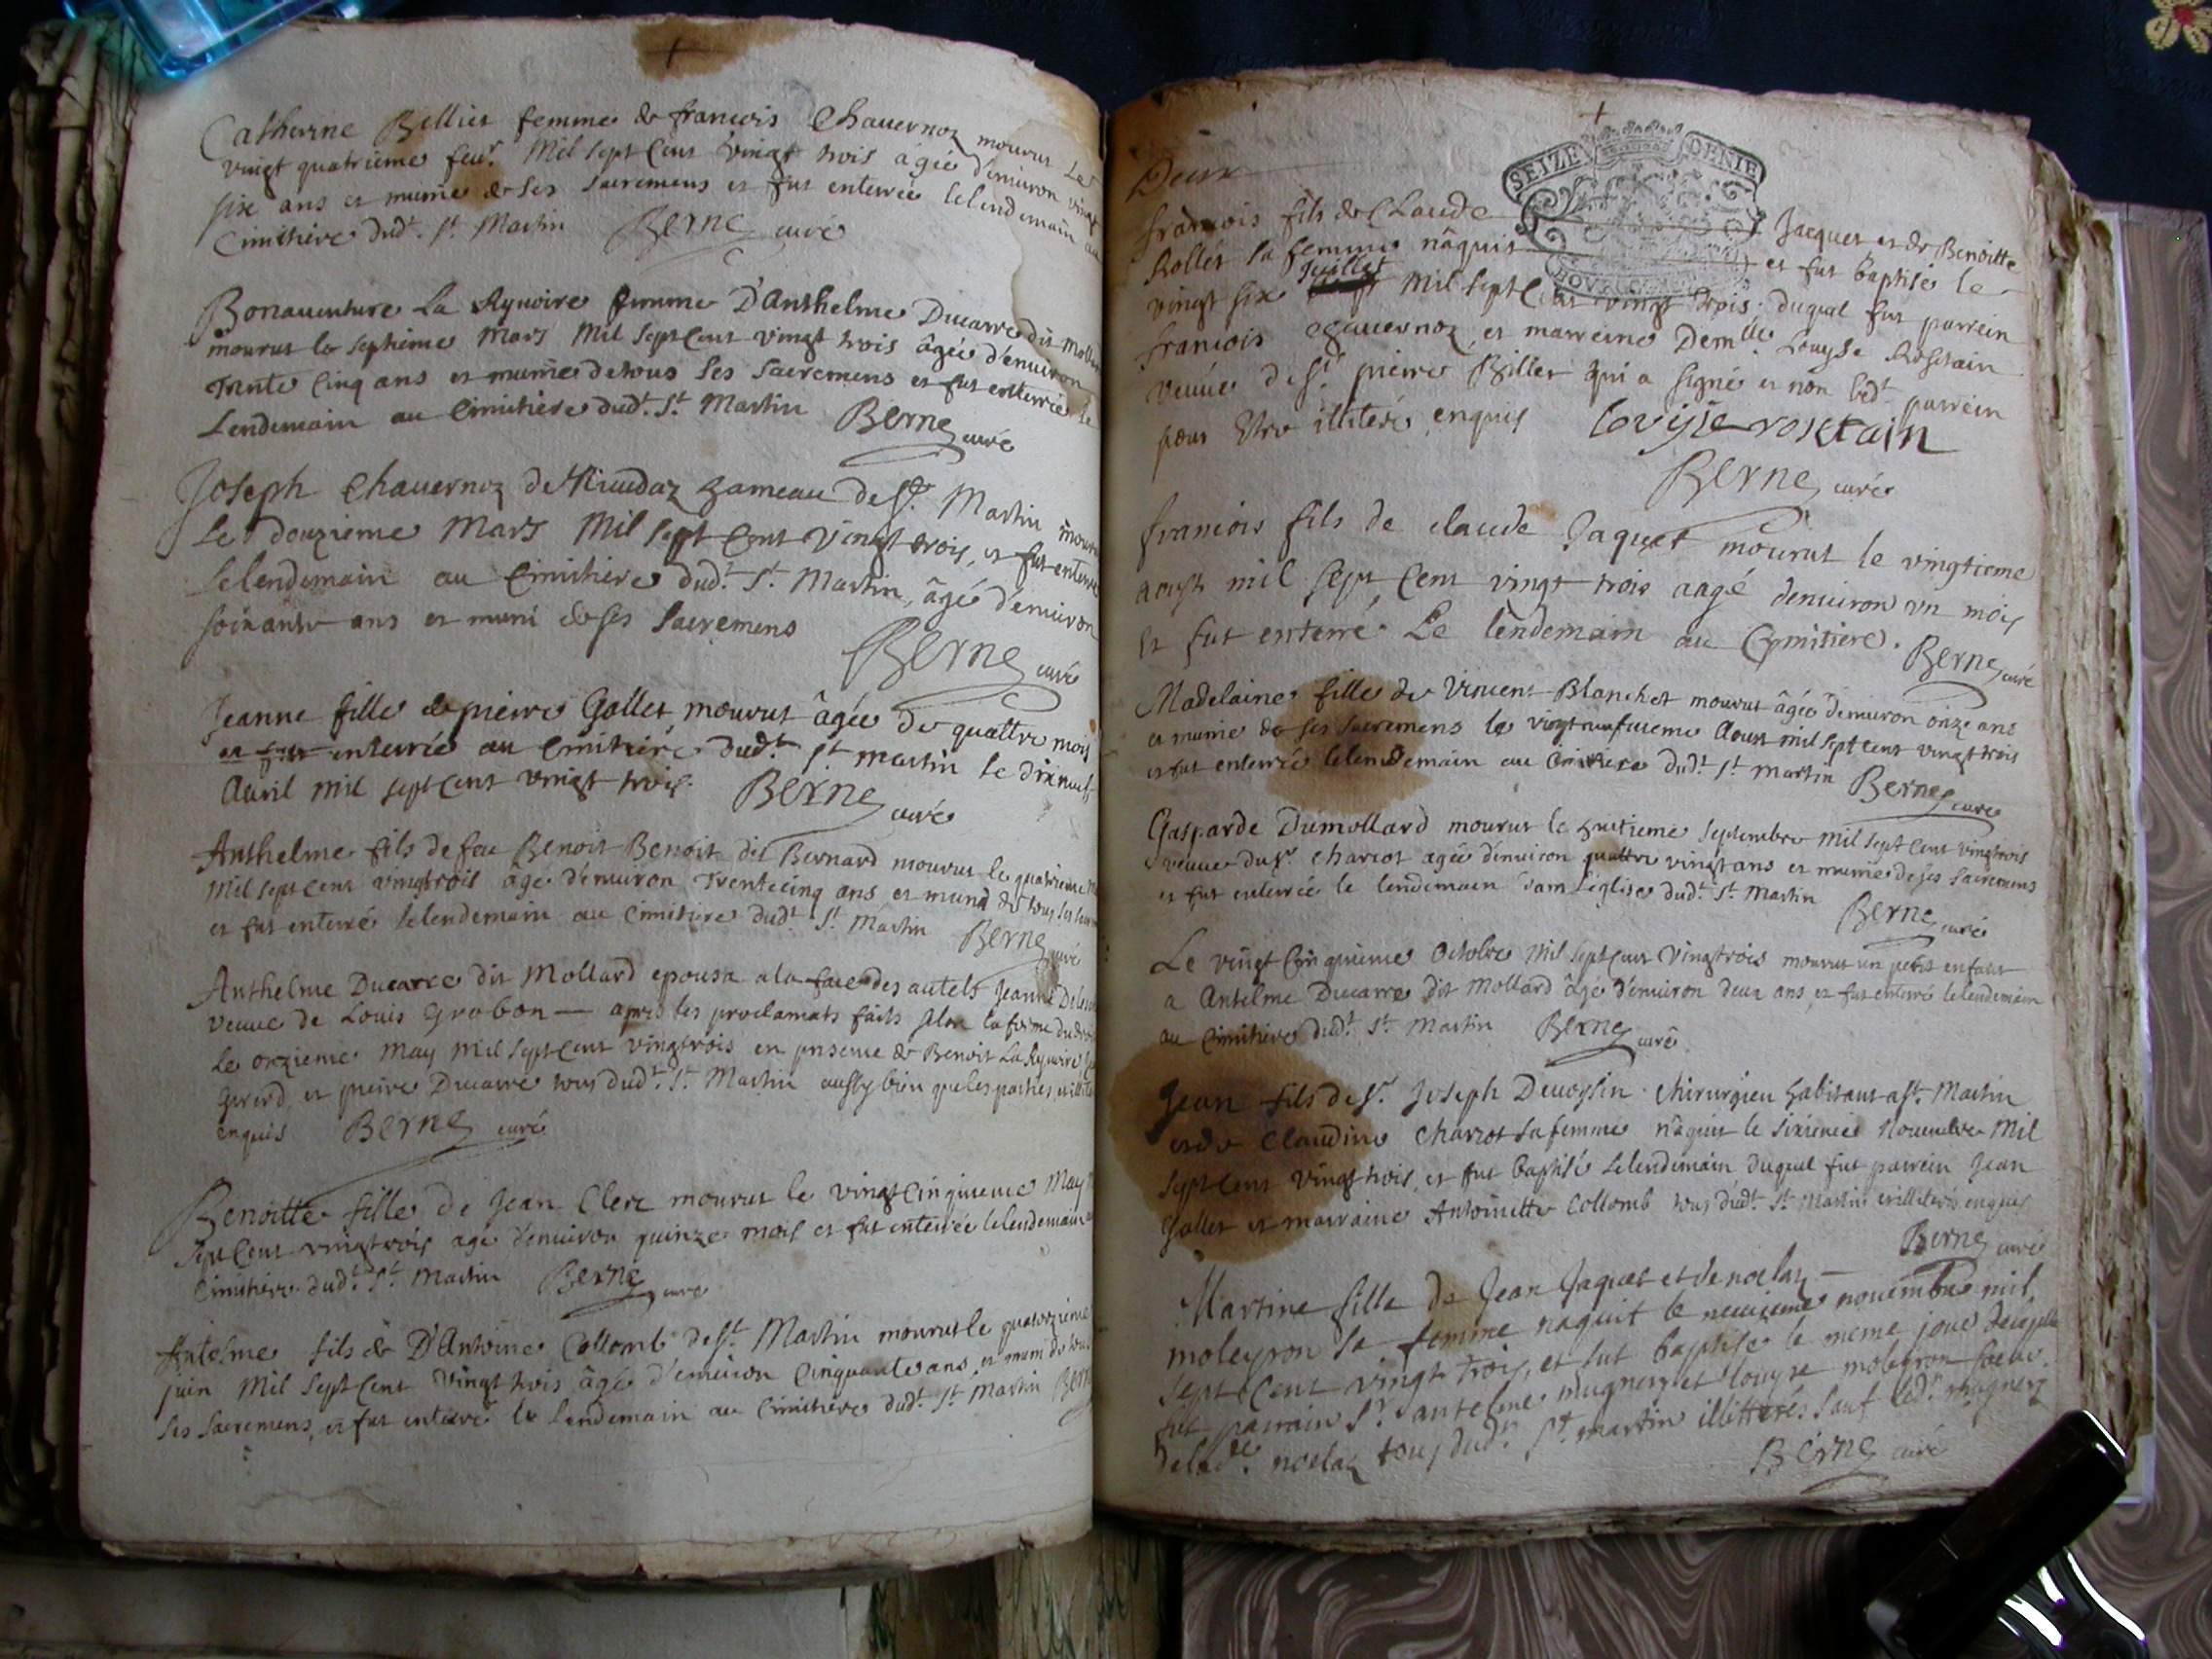 Catherine Billiet femme de francois Chauernoz mourut Le
vingt quatrieme feur. Mil sept Cent vingt trois âgée d'enuiron vingt
six ans et munie de ses sacremens et fut enterrée lelendemain au
Cimithiere dudt. St. Martin Berne curé
Bonauenture La Rynoire femme D'Anthelme Ducarre dit Mollar
mourut le septieme Mars Mil sept Cent vingt trois âgée d'enuiron
Trente Cinq ans et munie de tous ses sacremens et fut enterrée le
Lendemain au Cimitiere dudt. St. Martin Berne curé
Joseph Chauernoz de hameau de St. Martin mourut
Le douzieme Mars Mil sept Cent Vingt trois, et fut enterré
lelendemain au Cimithiere dudt. St. Martin, âgé d'enuiron
soixante ans et muni de ses Sacremens
Berne curé
Jeanne fille de pierre Gallet mourut âgée de quattre mois
et fut enterrée au Cimitiere dudt. St. martin le dixneuf
Auril mil sept Cent vingt trois. Berne curé
Anthelme fils de feu Benoit Benoit dit Bernard mourut le quatrieme
Mil sept cent vingtrois âgé d'enuiron Trentecinq ans et muni de tous ses
et fut enterré lelendemain au Cimitiere dudt. St. Martin Berne curé
Anthelme Ducarre dit Mollard epousa a la face des autels Jeanne
veuue de Louis Grobon — apres les proclamats faits selon la forme du droit
Le onzieme May Mil sept Cent vingtrois en presence de Benoit La Rynoire
et pierre Ducarre tous dudt. St. Martin aussy bien que les parties
enquis Berne curé
Benoitte fille de Jean Clerc mourut le vingt Cinquieme May
sept Cent vingtrois agé d'enuiron quinze mois et fut enterrée lelendemain
Cimithiere dudt. St. Martin Berne curé
Antelme fils de D'Antoine Collomb de St. Martin mourut le quatorzieme
juin Mil Sept Cent Vingt trois âgé d'enuiron Cinquante ans, et muni de tous
ses Sacremens, et fut enterré le Lendemain au Cimithiere dudt. St. Martin Berne
SEIZE DENIE
Deux
francois fils de Claude Jacquet et de Benoitte
Rollet sa femme nâquit et fut baptisé le
vingt six Juillet Mil sept Cent vingt trois duquel fut parrein
francois Chauernoz et marreine Demlle. Louyse Rostain
veuue de Sr. pierre Billet qui a signé et non ledt. parrein
pour Etre illiteré enquis Lovyse rostain
Berne curé
francois fils de claude Jaquet mourut le vingtieme
aoust mil sept Cent vingt trois aagé denuiron vn mois
et fut enterré Le lendemain au Cymitiere. Berne curé
Madelaine fille de Vincent Blanchet mourut âgée d'enuiron onze ans
et munie de ses sacremens le vingtneufuieme Aoust mil sept cent vingt trois
et fut enterrée lelendemain au Cimitiere dudt. St. Martin Berne curé
Gasparde Dumollard mourut le huitieme septembre Mil sept Cent vingtrois
veuue du Sr. Charcot agée d'enuiron quattre vingt ans et munie de ses sacremens
et fut enterrée le lendemain dans L'eglise dudt. St. Martin
Berne curé
Le vingt Cinquieme Octobre Mil sept Cent Vingtrois mourut un petit enfant
a Antelme Ducarre dit Mollard âgé d'enuiron deux ans, et fut enterré lelendemain
au Cimithiere dudt. St. Martin Berne curé
Jean fils de Sr. Joseph Deuoysin Chirurgien habitant a St. Martin
et de Claudine Charcot sa femme nâquit le sixieme Nouembre Mil
sept Cent vingt trois, et fut baptisé Lelendemain duquel fut parrein Jean
Gallet et marraine Antoinette Collomb tous dudt. St. Martin illiterés enquis
Berne curé
Martine fille de Jean Jaquet et de noelaz —
moleyron sa femme naquit le neuuieme nouembre mil
sept Cent vingt trois, et fut baptisée le meme jour de laquelle
fut parrain Sr. antelme mugnerz et Louyse moleyron soeur
de ladte. noelaz tous dudt. St. martin illitterés sauf ledt. mugnerz
Berne curé